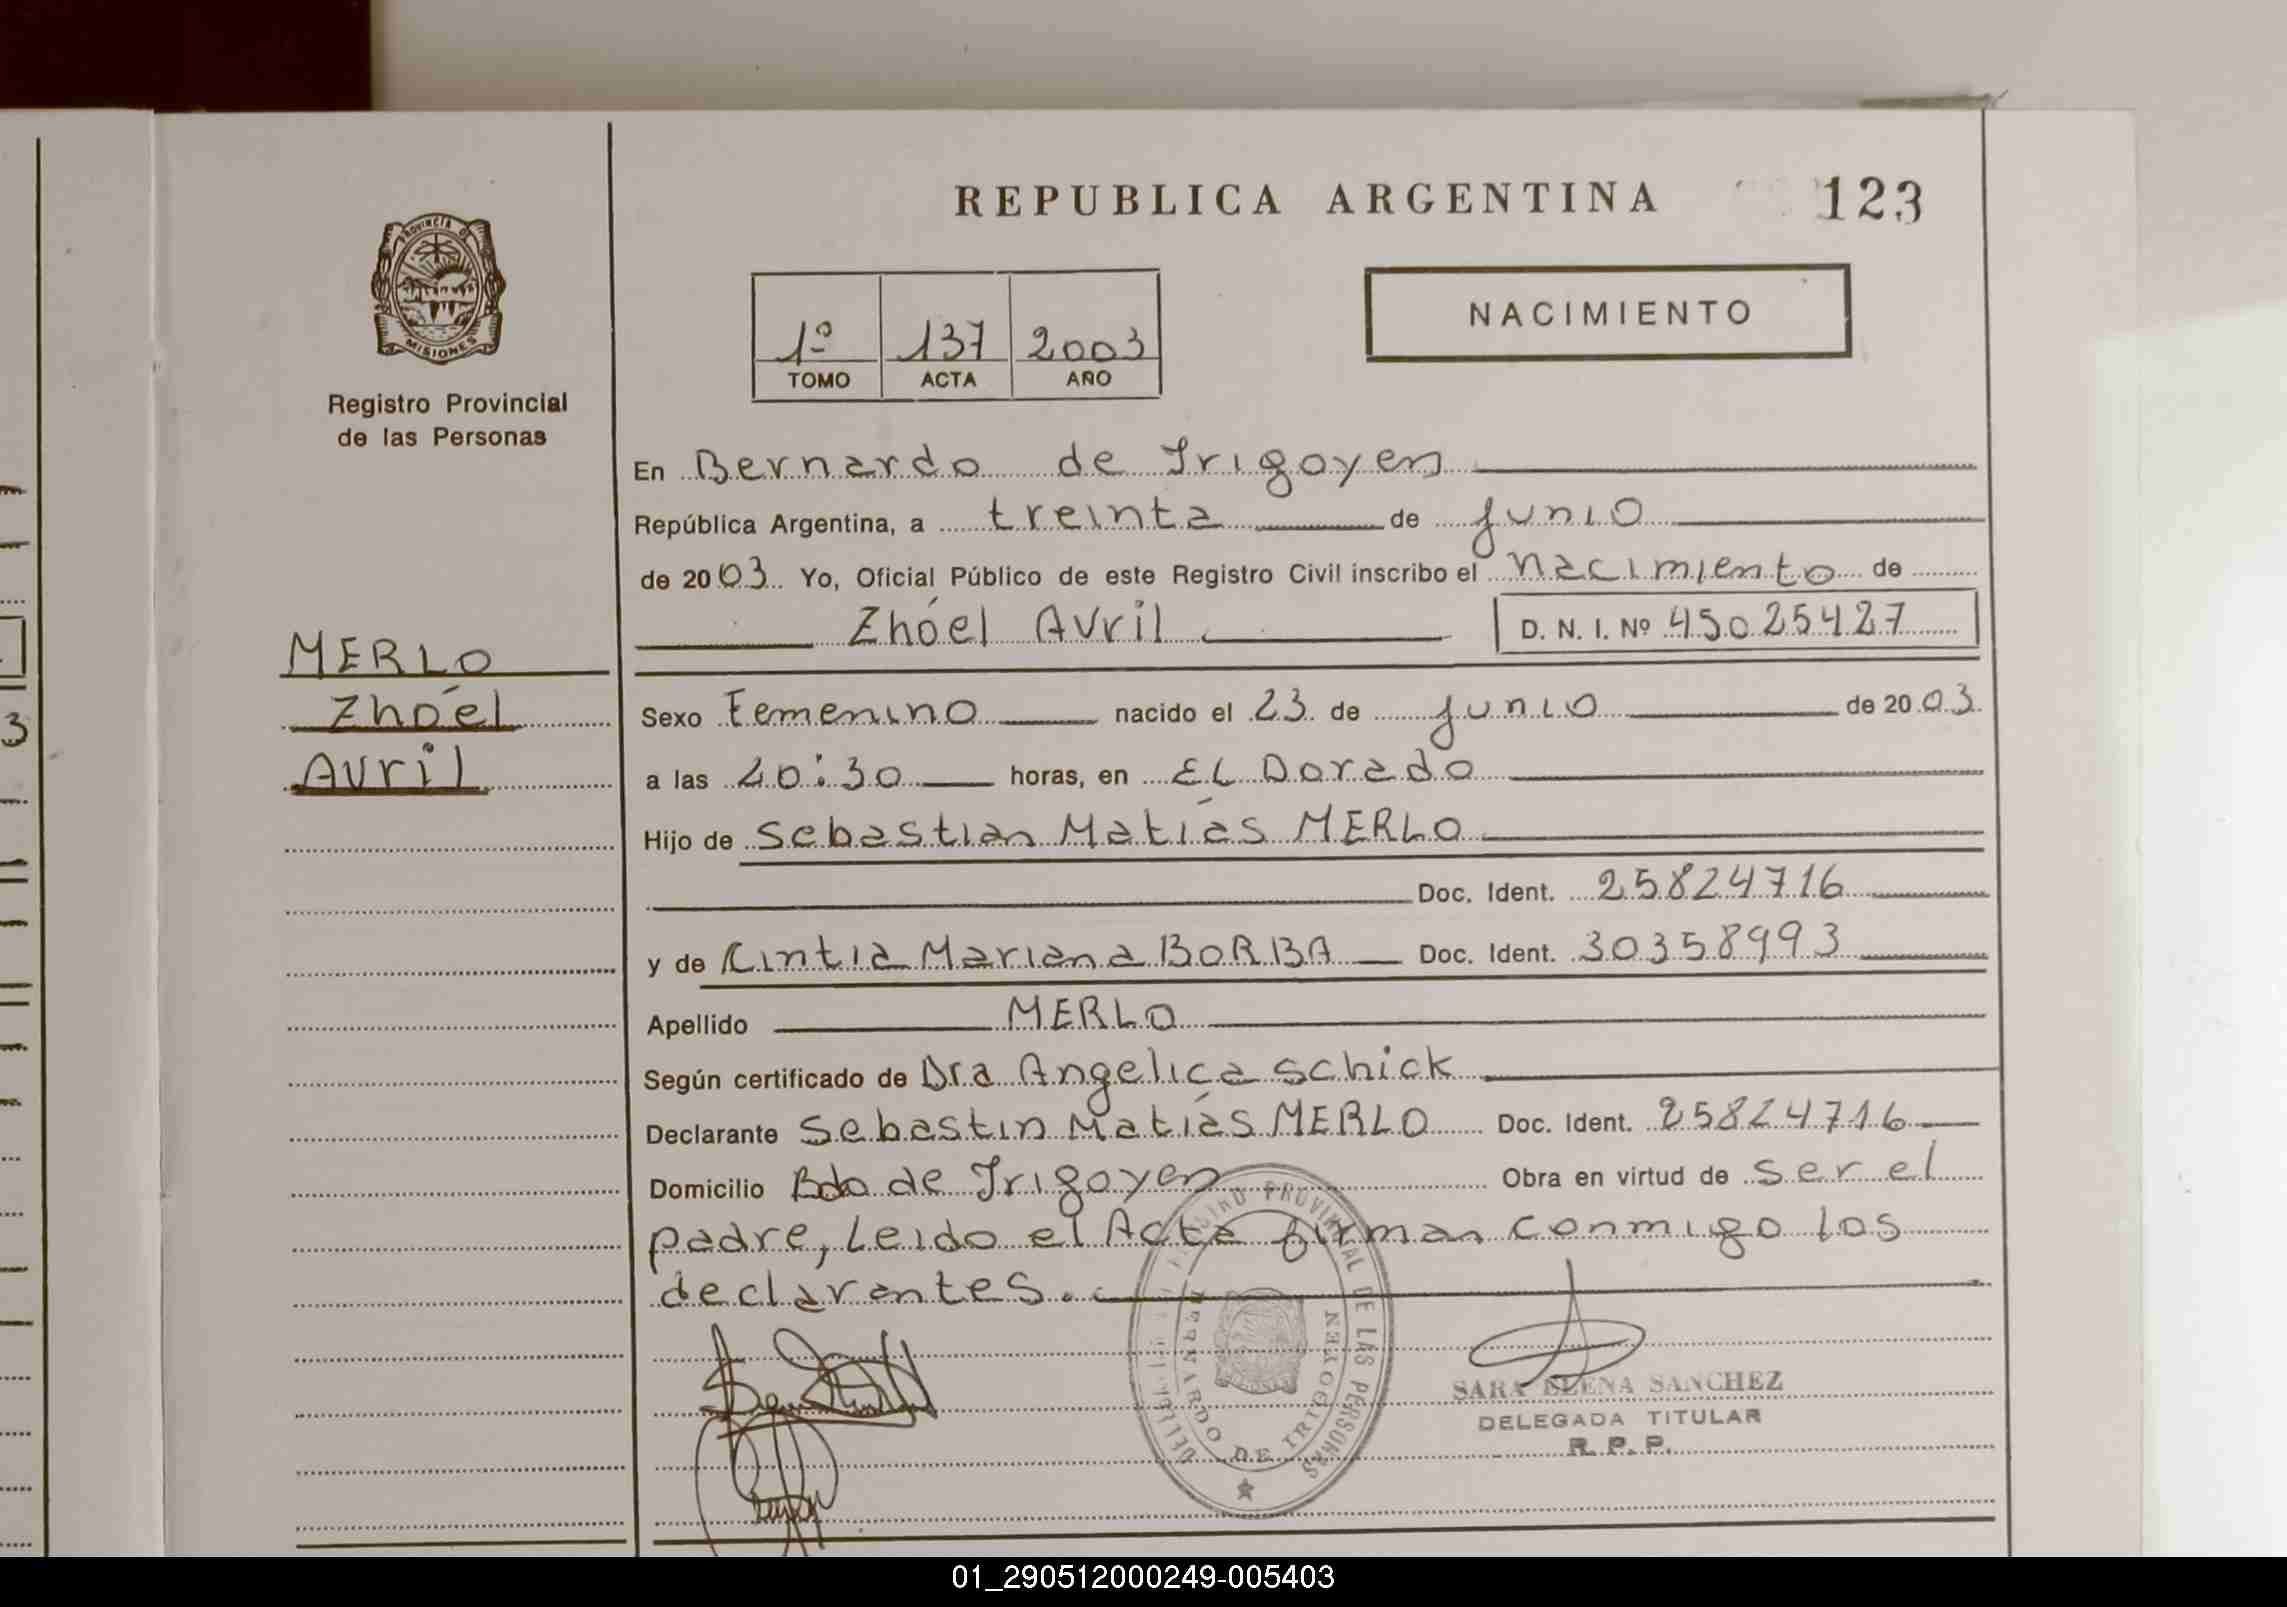 REPUBLICA ARGENTINA
123
PROVINCIA DE
MISIONES
Registro Provincial
de las Personas
1º 137 2003
TOMO ACTA AÑO
NACIMIENTO
En Bernardo de Irigoyen
República Argentina, a treinta de junio
de 2003 Yo, Oficial Público de este Registro Civil inscribo el nacimiento de
Zhóel Avril D. N. I. Nº 45025427
MERLO
Zhóel
Avril
Sexo Femenino nacido el 23 de junio de 2003
a las 20:30 horas, en EL Dorado
Hijo de Sebastian Matías MERLO
Doc. Ident. 25824716
y de Cintia Mariana BORBA Doc. Ident. 30358993
Apellido MERLO
Según certificado de Dra Angelica Schick
Declarante Sebastin Matías MERLO Doc. Ident. 25824716
Domicilio Bdo de Irigoyen Obra en virtud de ser el
padre, Leido el Acta firman conmigo los
declarantes.
REGISTRO PROVINCIAL DE LAS PERSONAS
BERNARDO DE IRIGOYEN
SARA ELENA SANCHEZ
DELEGADA TITULAR
R. P. P.
3
01_290512000249-005403